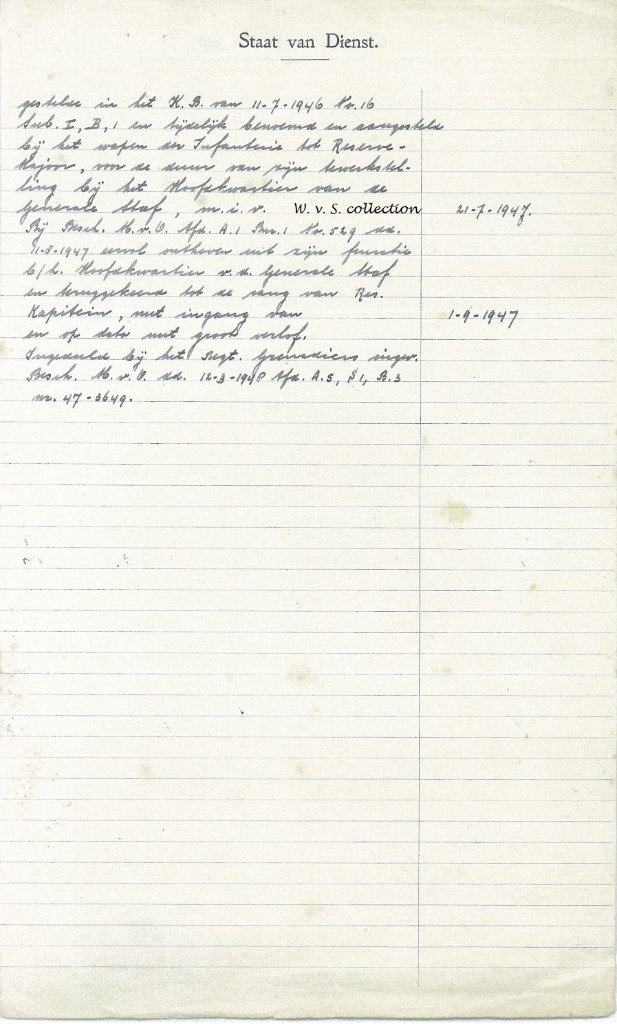 Staat van Dienst.
gestelde in het K.B. van 11-7-1946 Nr. 16
Sub. I, B, 1 en tijdelijk benoemd en aangesteld
bij het wapen der Infanterie tot Reserve-
Majoor, voor de duur van zijn tewerkstel-
ling bij het Hoofdkwartier van de
Generale Staf, m.i.v. W. v. S. collection 21-7-1947.
Bij Besch. M.v.O. Afd. A.1 Bur. 1 Nr. 529 dd.
11-8-1947 eervol ontheven uit zijn functie
b/h. Hoofdkwartier v.d. Generale Staf
en teruggekeerd tot de rang van Res.
Kapitein, met ingang van 1-9-1947
en op dato met groot verlof.
Ingedeeld bij het Regt. Grenadiers ingev.
Besch. M.v.O. dd. 12-3-1948 Afd. A.5, §1, B.3
nr. 47-3649.